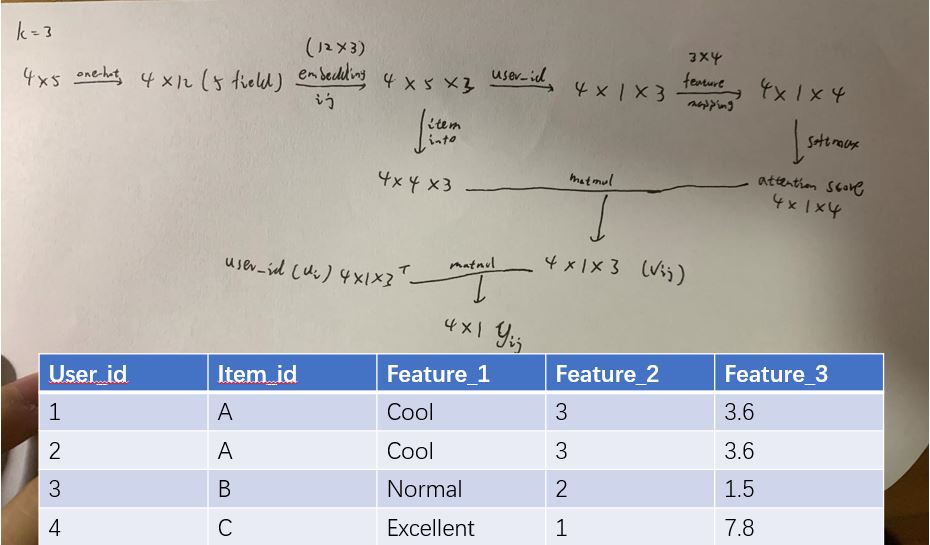 k=3
(12×3)
4×5 one-hot 4×12 (5 field) embedding ij 4×5×3 user_id 4×1×3 3×4 feature mapping 4×1×4
item info
softmax
4×4×3 matmul attention score 4×1×4
user_id (ui) 4×1×3ᵀ matmul 4×1×3 (Vij)
4×1 yij
User_id Item_id Feature_1 Feature_2 Feature_3
1 A Cool 3 3.6
2 A Cool 3 3.6
3 B Normal 2 1.5
4 C Excellent 1 7.8